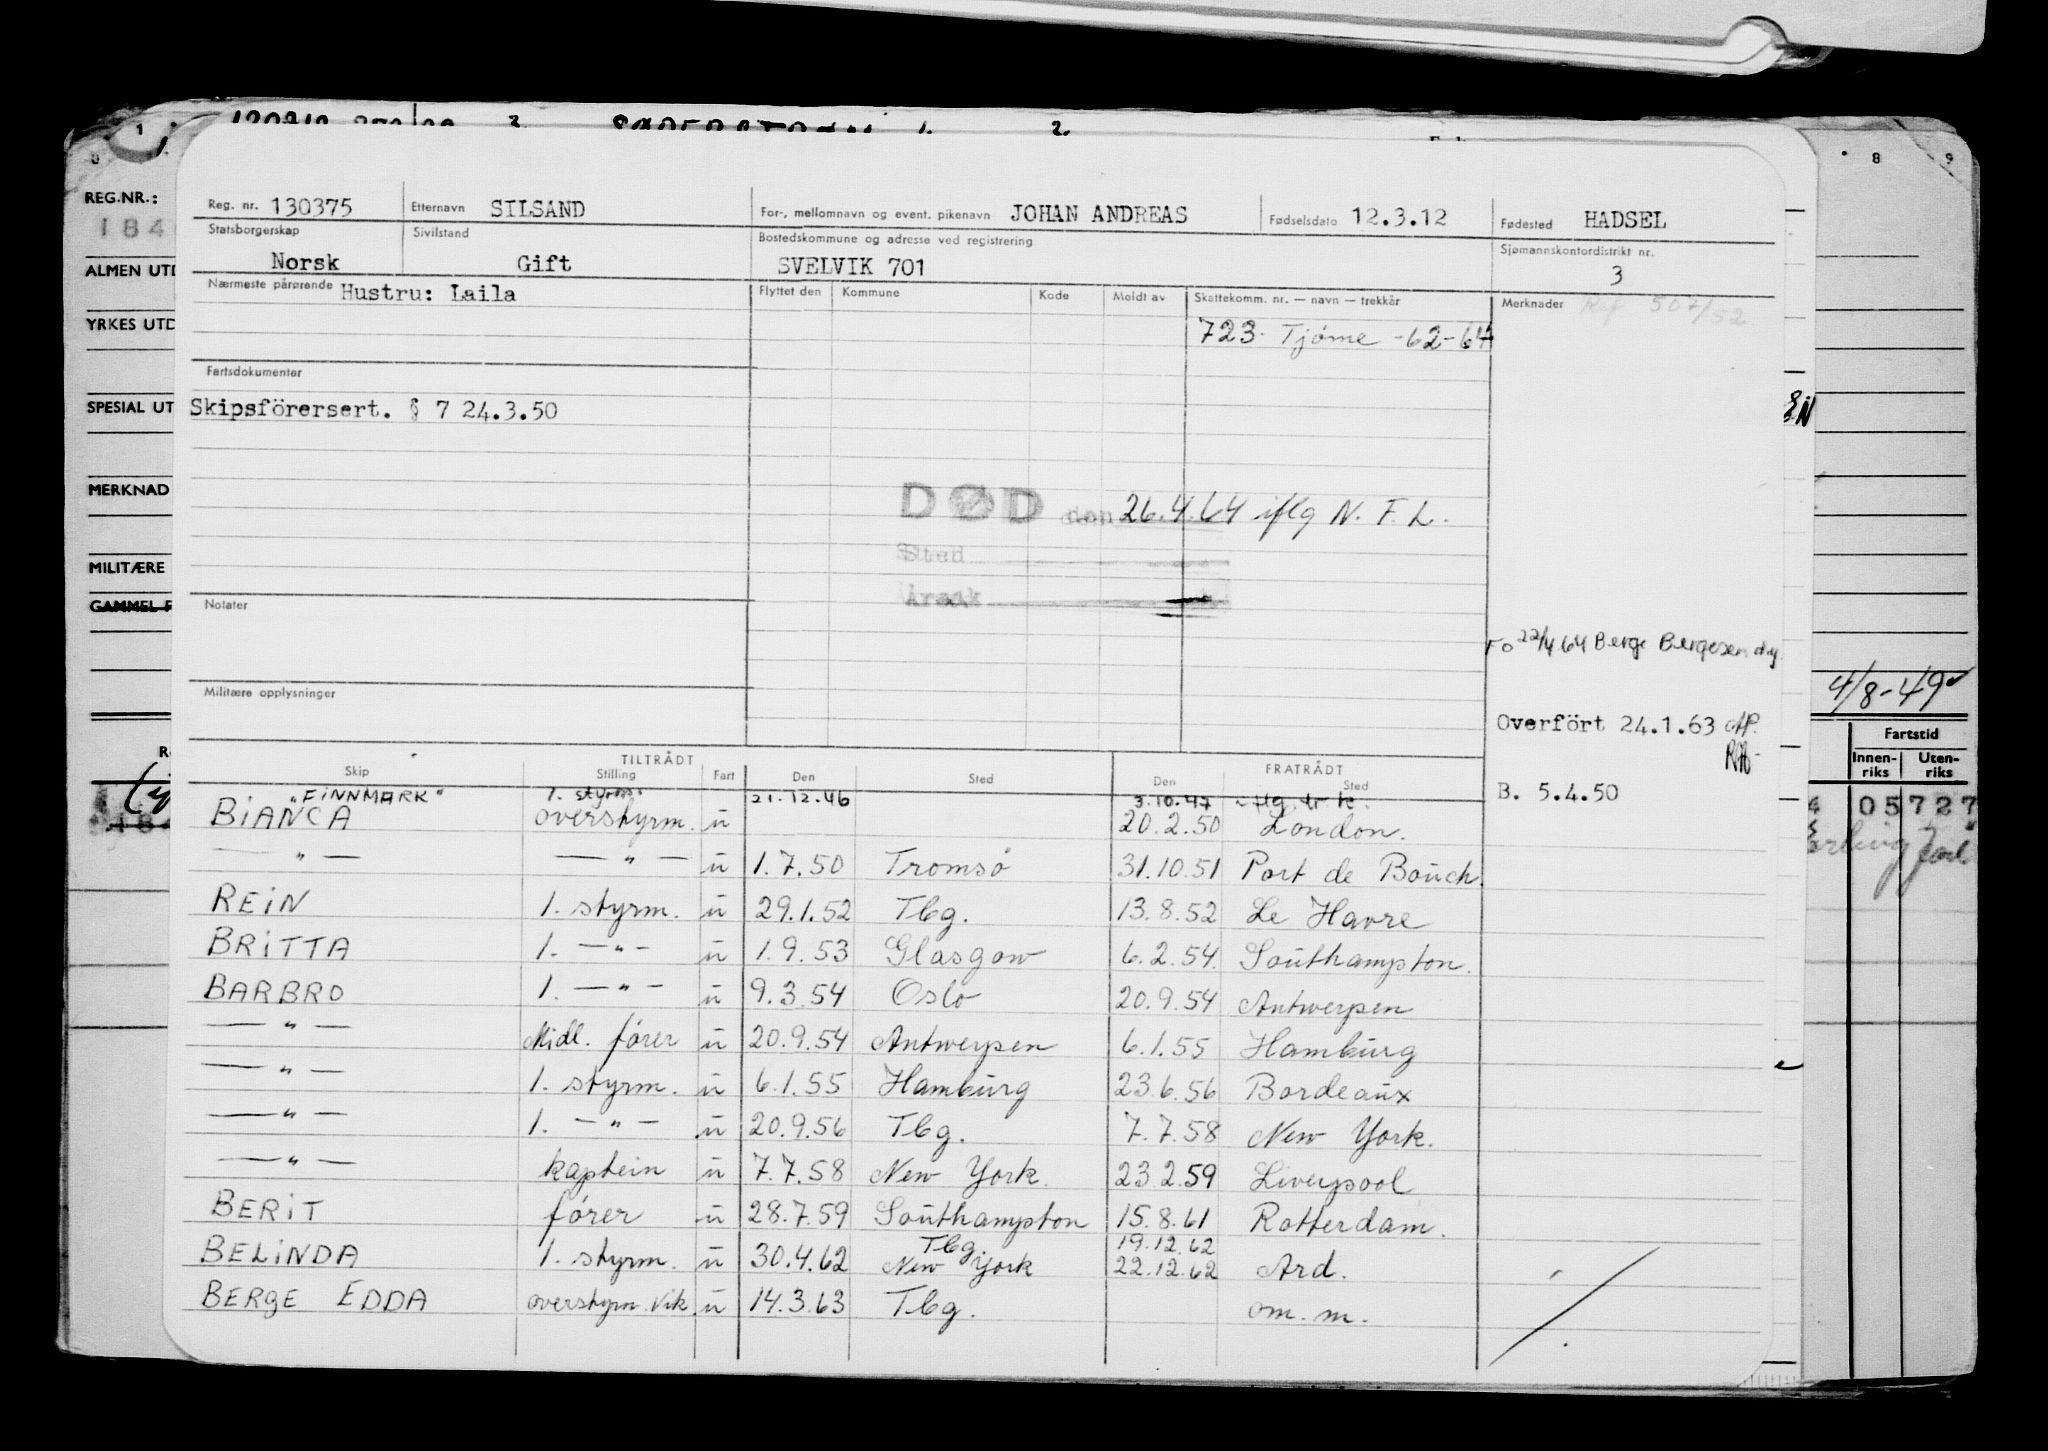 REG.NR.:
184
ALMEN UTD
YRKES UTD
SPESIAL UT
MERKNAD
MILITÆRE
GAMMEL F
Reg. nr. 130375 Etternavn SILSAND For-, mellomnavn og event. pikenavn JOHAN ANDREAS Fødselsdato 12.3.12 Fødested HADSEL
Statsborgerskap Norsk Sivilstand Gift Bostedskommune og adresse ved registrering SVELVIK 701 Sjømannskontordistrikt nr. 3
Nærmeste pårørende Hustru: Laila Flyttet den Kommune Kode Meldt av Skattekomm. nr. — navn — trekkår Merknader Ref 507/52
723 - Tjøme -62-64
Fartsdokumenter
Skipsförersert. § 7 24.3.50
DØD den 26.4.64 iflg N. F. L.
Sted
Årsak
Notater
Fo 22/4 64 Berge Bergesen d.y.
Militære opplysninger
4/8-49
Overfört 24.1.63
B. 5.4.50
Fartstid
Innen-riks Uten-riks
05727
TILTRÅDT FRATRÅDT
Skip Stilling Fart Den Sted Den Sted
"FINNMARK" 1. styrm. 21.12.46 3.10.47
BIANCA overstyrm. u 20.2.50 London.
— " — — " — u 1.7.50 Tromsø 31.10.51 Port de Bouch.
REIN 1. styrm. u 29.1.52 Tbg. 13.8.52 Le Havre
BRITTA 1. — " — u 1.9.53 Glasgow 6.2.54. Southampton.
BARBRO 1. — " — u 9.3.54 Oslo 20.9.54 Antwerpen
— " — Midl. fører u 20.9.54 Antwerpen 6.1.55 Hamburg
— " — 1. styrm. u 6.1.55 Hamburg 23.6.56 Bordeaux
— " — 1. — " — u 20.9.56 Tbg. 7.7.58 New York.
— " — kaptein u 7.7.58 New York. 23.2.59 Liverpool
BERIT fører u 28.7.59 Southampton 15.8.61 Rotterdam.
Tbg. 19.12.62
BELINDA 1. styrm. u 30.4.62 New York 22.12.62 Ard.
BERGE EDDA overstyrm. vik. u 14.3.63 Tbg. om. m.